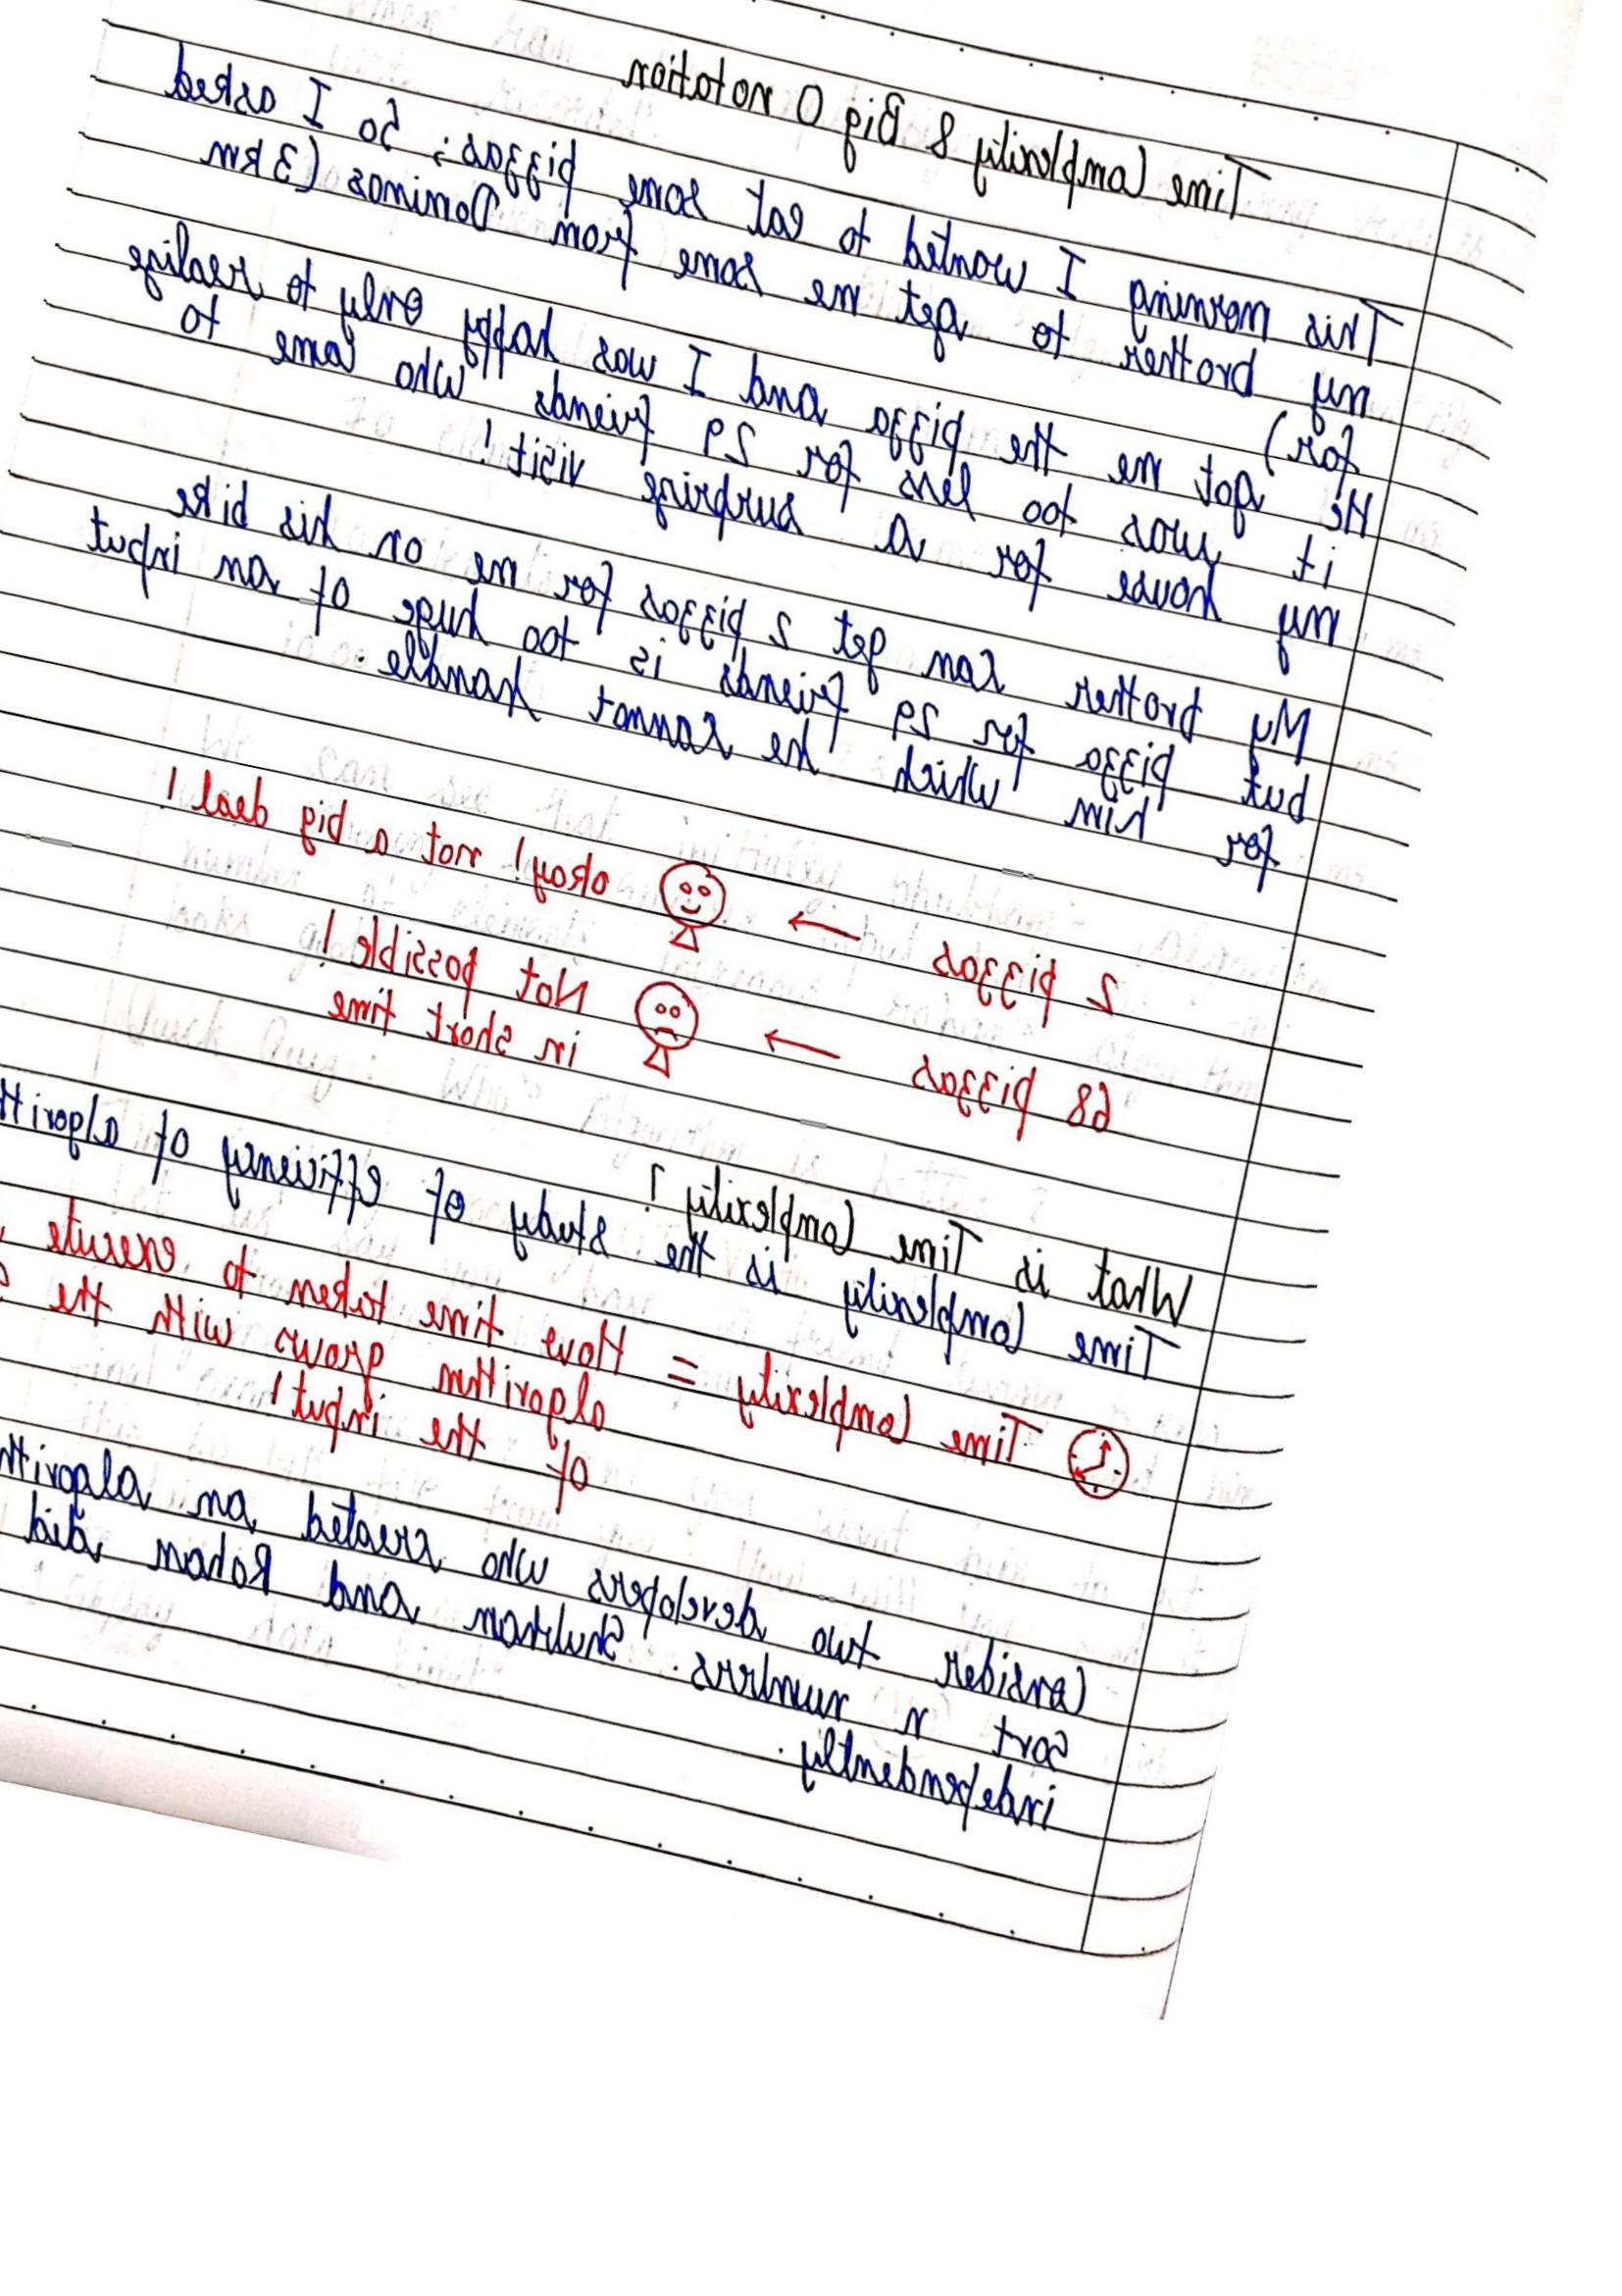 Time Complexity & Big O notation
This morning I wanted to eat some pizzas; So I asked
my brother to get me some from Dominos (3 km
far)
He got me the pizza and I was happy only to realize
it was too less for 29 friends who came to
my house for a surprise visit!
My brother can get 2 pizzas for me on his bike
but pizza for 29 friends is too huge of an input
for him which he cannot handle.
2 pizzas → okay! not a big deal!
68 pizzas → Not possible!
in short time
What is Time Complexity?
Time Complexity is the study of efficiency of algorith
Time Complexity = How time taken to execute
algorithm grows with the
of the input!
Consider two developers who created an algorith
sort n numbers. Shubham and Rohan did
independently.